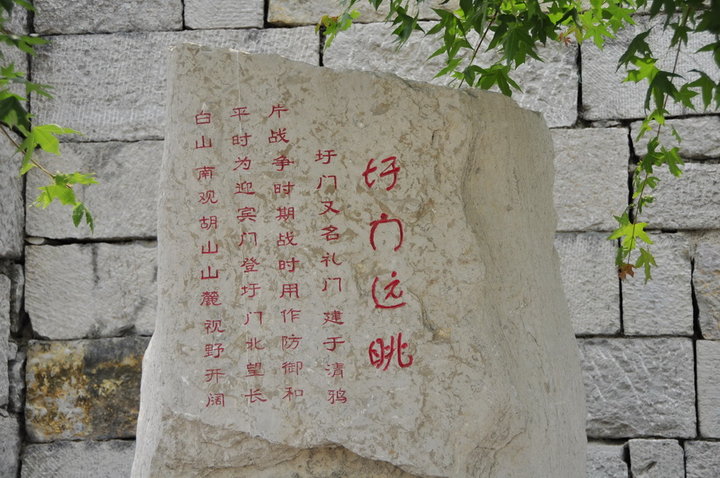 圩门远眺
圩门又名礼门 建于清鸦
片战争时期战时用作防御和
平时为迎宾门登圩门北望长
白山 南观胡山山麓 视野开阔